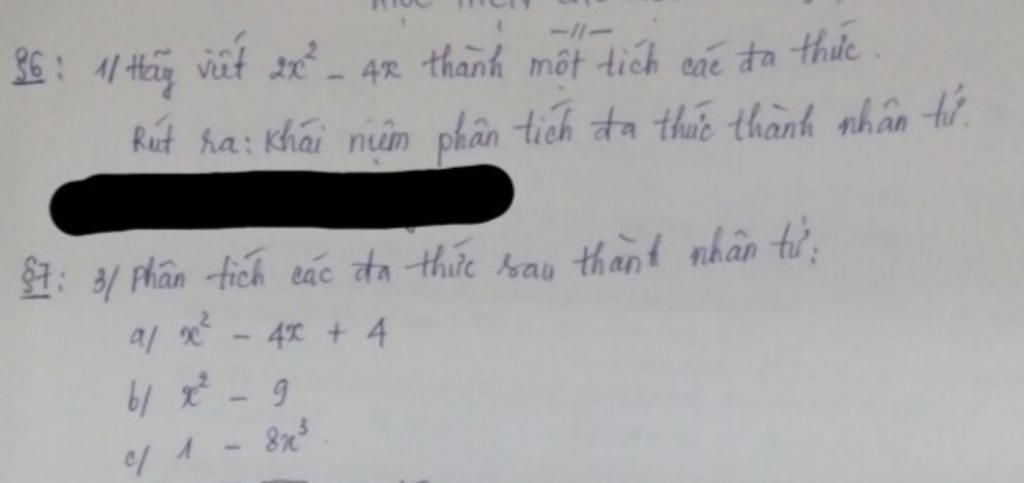 -//-
§6: 1/ Hãy viết 2x² - 4x thành một tích các đa thức.
Rút ra: Khái niệm phân tích đa thức thành nhân tử.
§7: 3/ Phân tích các đa thức sau thành nhân tử:
a/ x² - 4x + 4
b/ x² - 9
c/ 1 - 8x³.